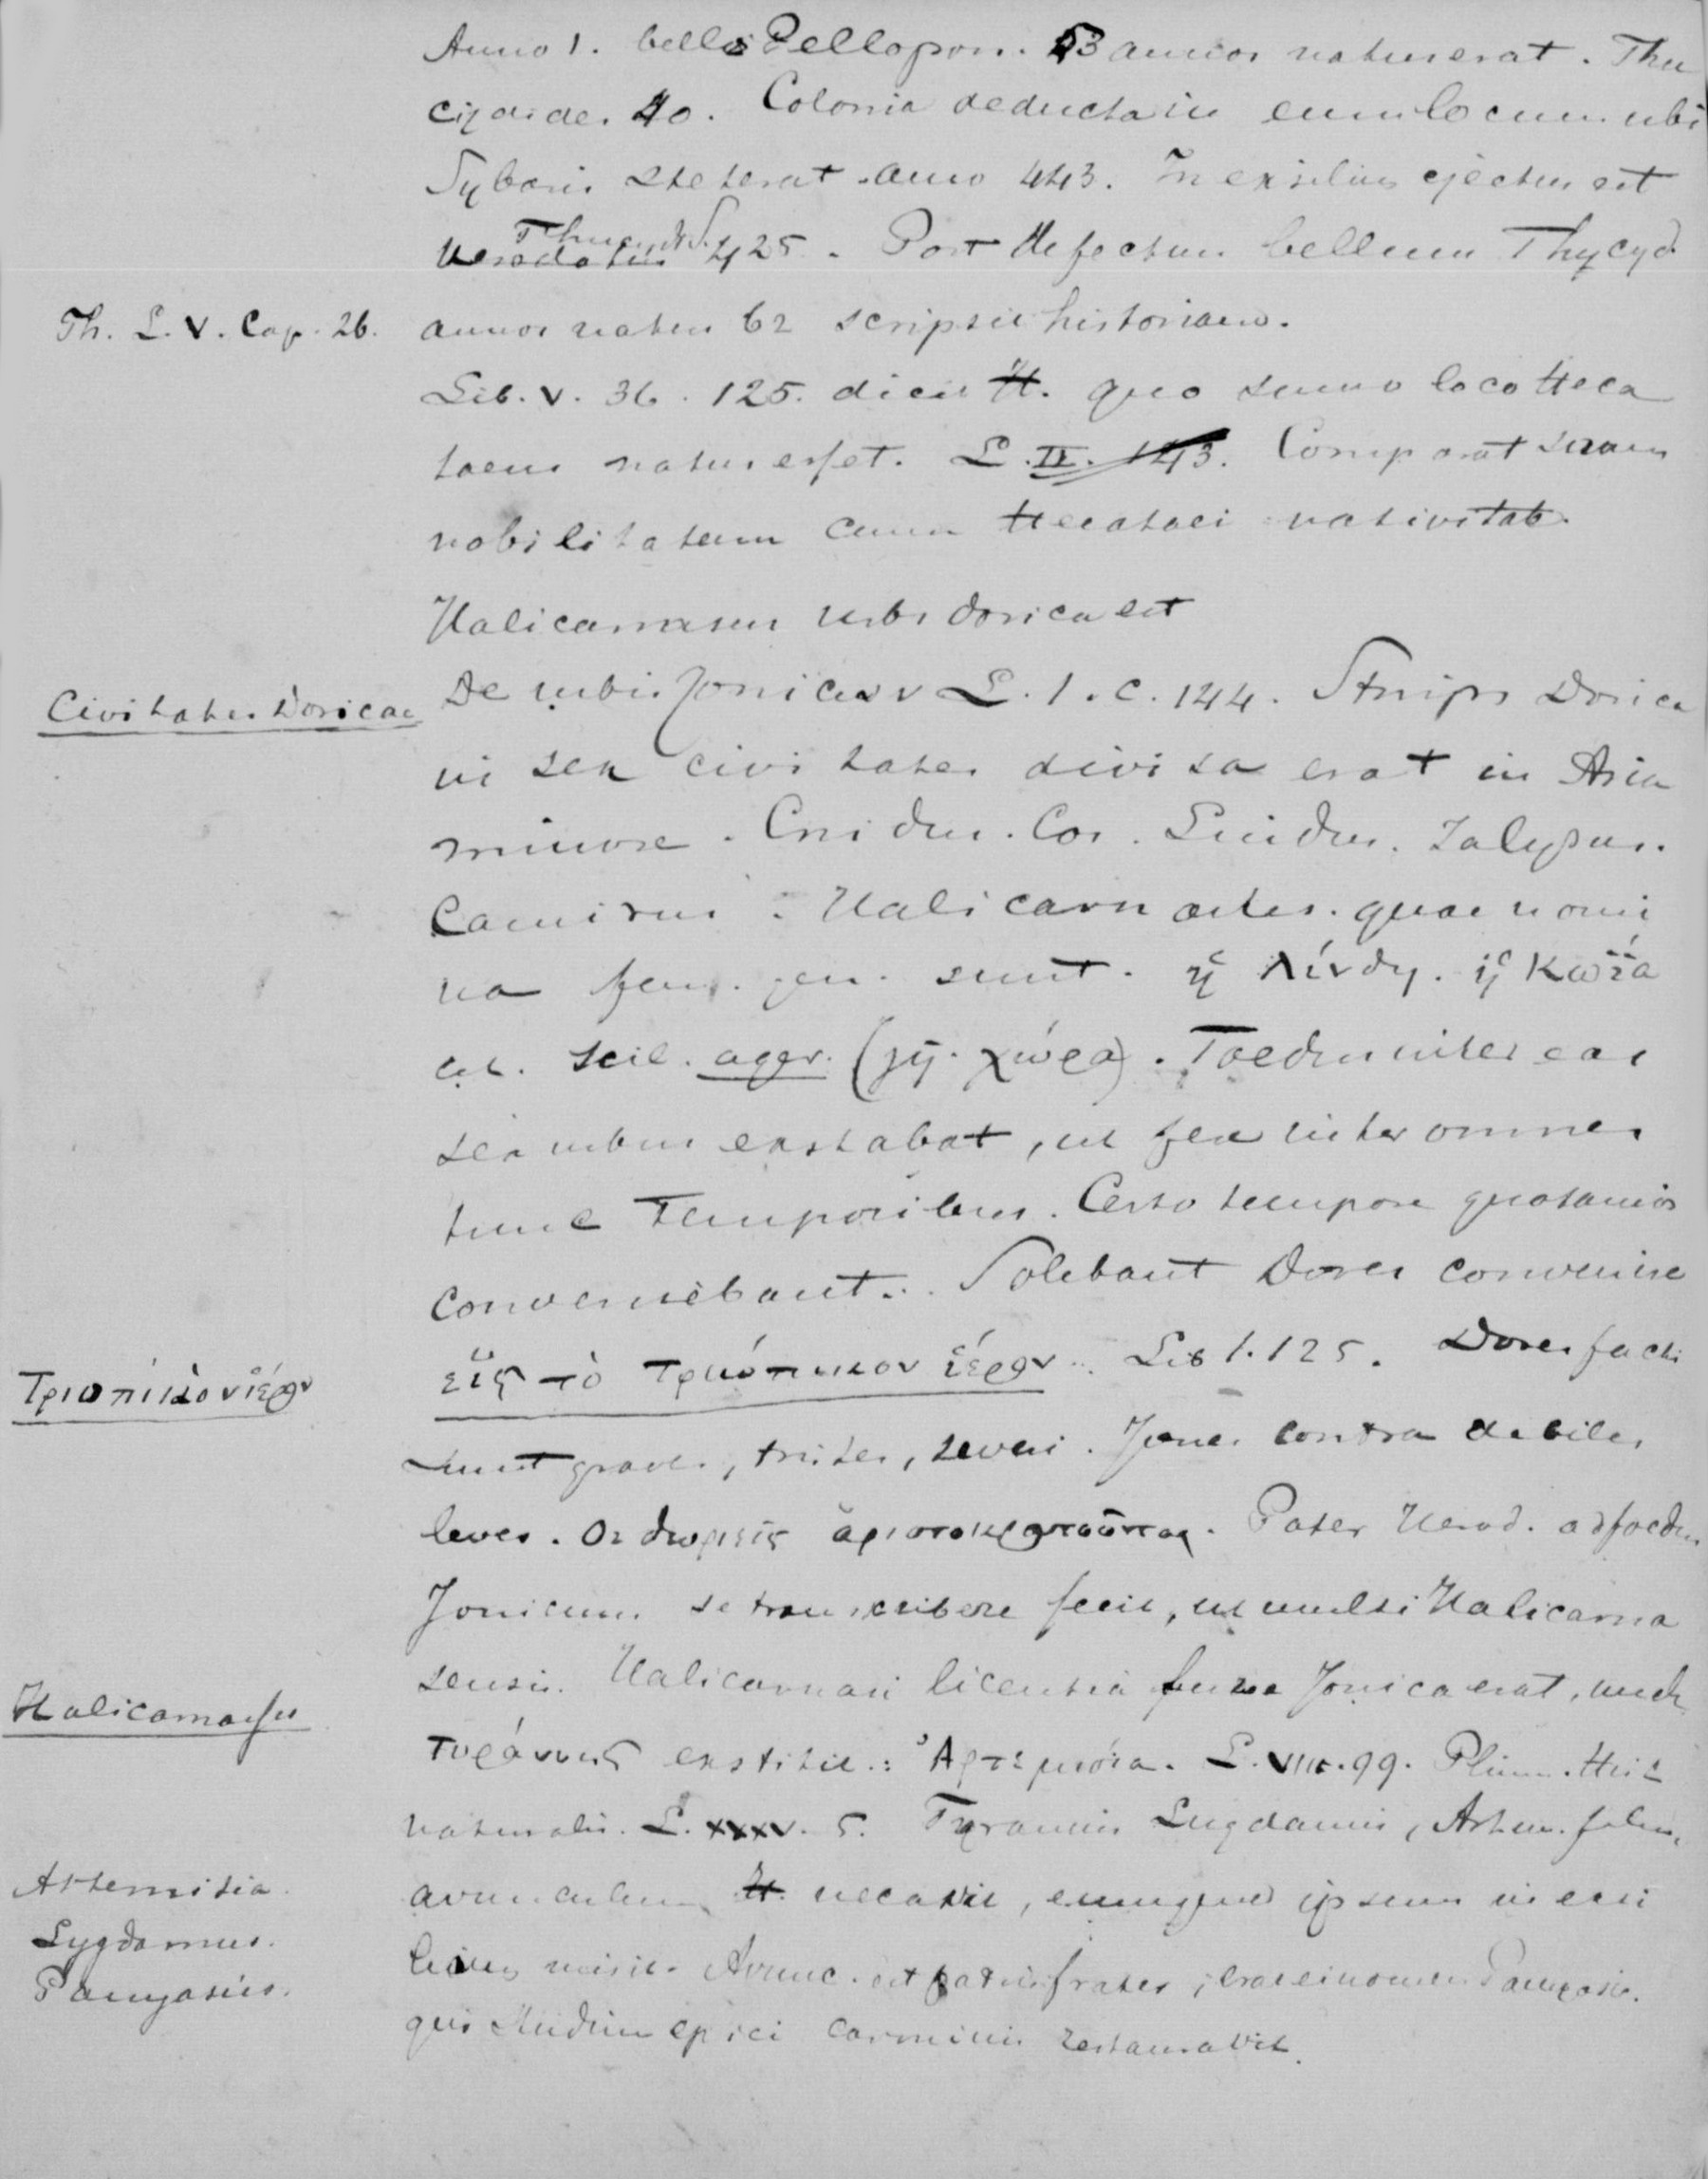 Anno 1. belli Pellopon. 53 annos natus erat. Thu
cydides 40. Colonia deducta in eum locum ubi
Sybaris steterat anno 443. In exsilium ejectus est
Thucydid.
Herodotus 425. Post defectum bellum Thycyd.
Th. L. V. Cap. 26. annos natus 62 scripsit historiam.
Lib. V. 36. 125. dicit H. quo summo loco Heca
taeus natus esset. L. II. 143. Comparat suam
nobilitatem cum Hecataei nativitate.
Halicarnasus urbs dorica est
Civitates Doricae
De urbis Jonicis v L. 1. c. 144. Stirps Dorica
in sex civitates divisa erat in Asia
minore. Cnidus. Cos. Lindus. Jalysus.
Camirus. Halicarnassus. quae nomi
na fem. gen. sunt. ἡ Λίνδη. ἡ Κωΐα
cet. scil. ager. (γῆ. χώρα). Foedus inter eas
sex urbes exstabat, ut fere inter omnes
tunc temporibus. Certo tempore quotannis
conveniebant. Solebant Dores convenire
Τριοπικὸν ἱέρον
εἰς τὸ Τριόπικον ἱέρον. Lib 1. 125. Dores facti
sunt graves, tristes, severi. Jones contra debiles
leves. Οἱ δωριεῖς ἀριστοκρατοῦνται. Pater Herod. ad foedus
Jonicum se transcribere fecit, ut multi Halicarna
sensis. Halicarnasi licentia fere Jonica erat, unde
Halicarnassus
τυράννις exstitit: Ἀρτεμισία. L. VIII. 99. Plinn. Hist
naturalis. L. XXXV. 5. Tyrannis Lugdamis, Artem. filius,
Artemisia.
avunculum H. necavit, eumque ipsum in exsi
Lygdamus.
lium misit. Avunc. est patris frater, erat ei nomen Panyasis.
Panyasius.
qui studium epici carminis restauravit.